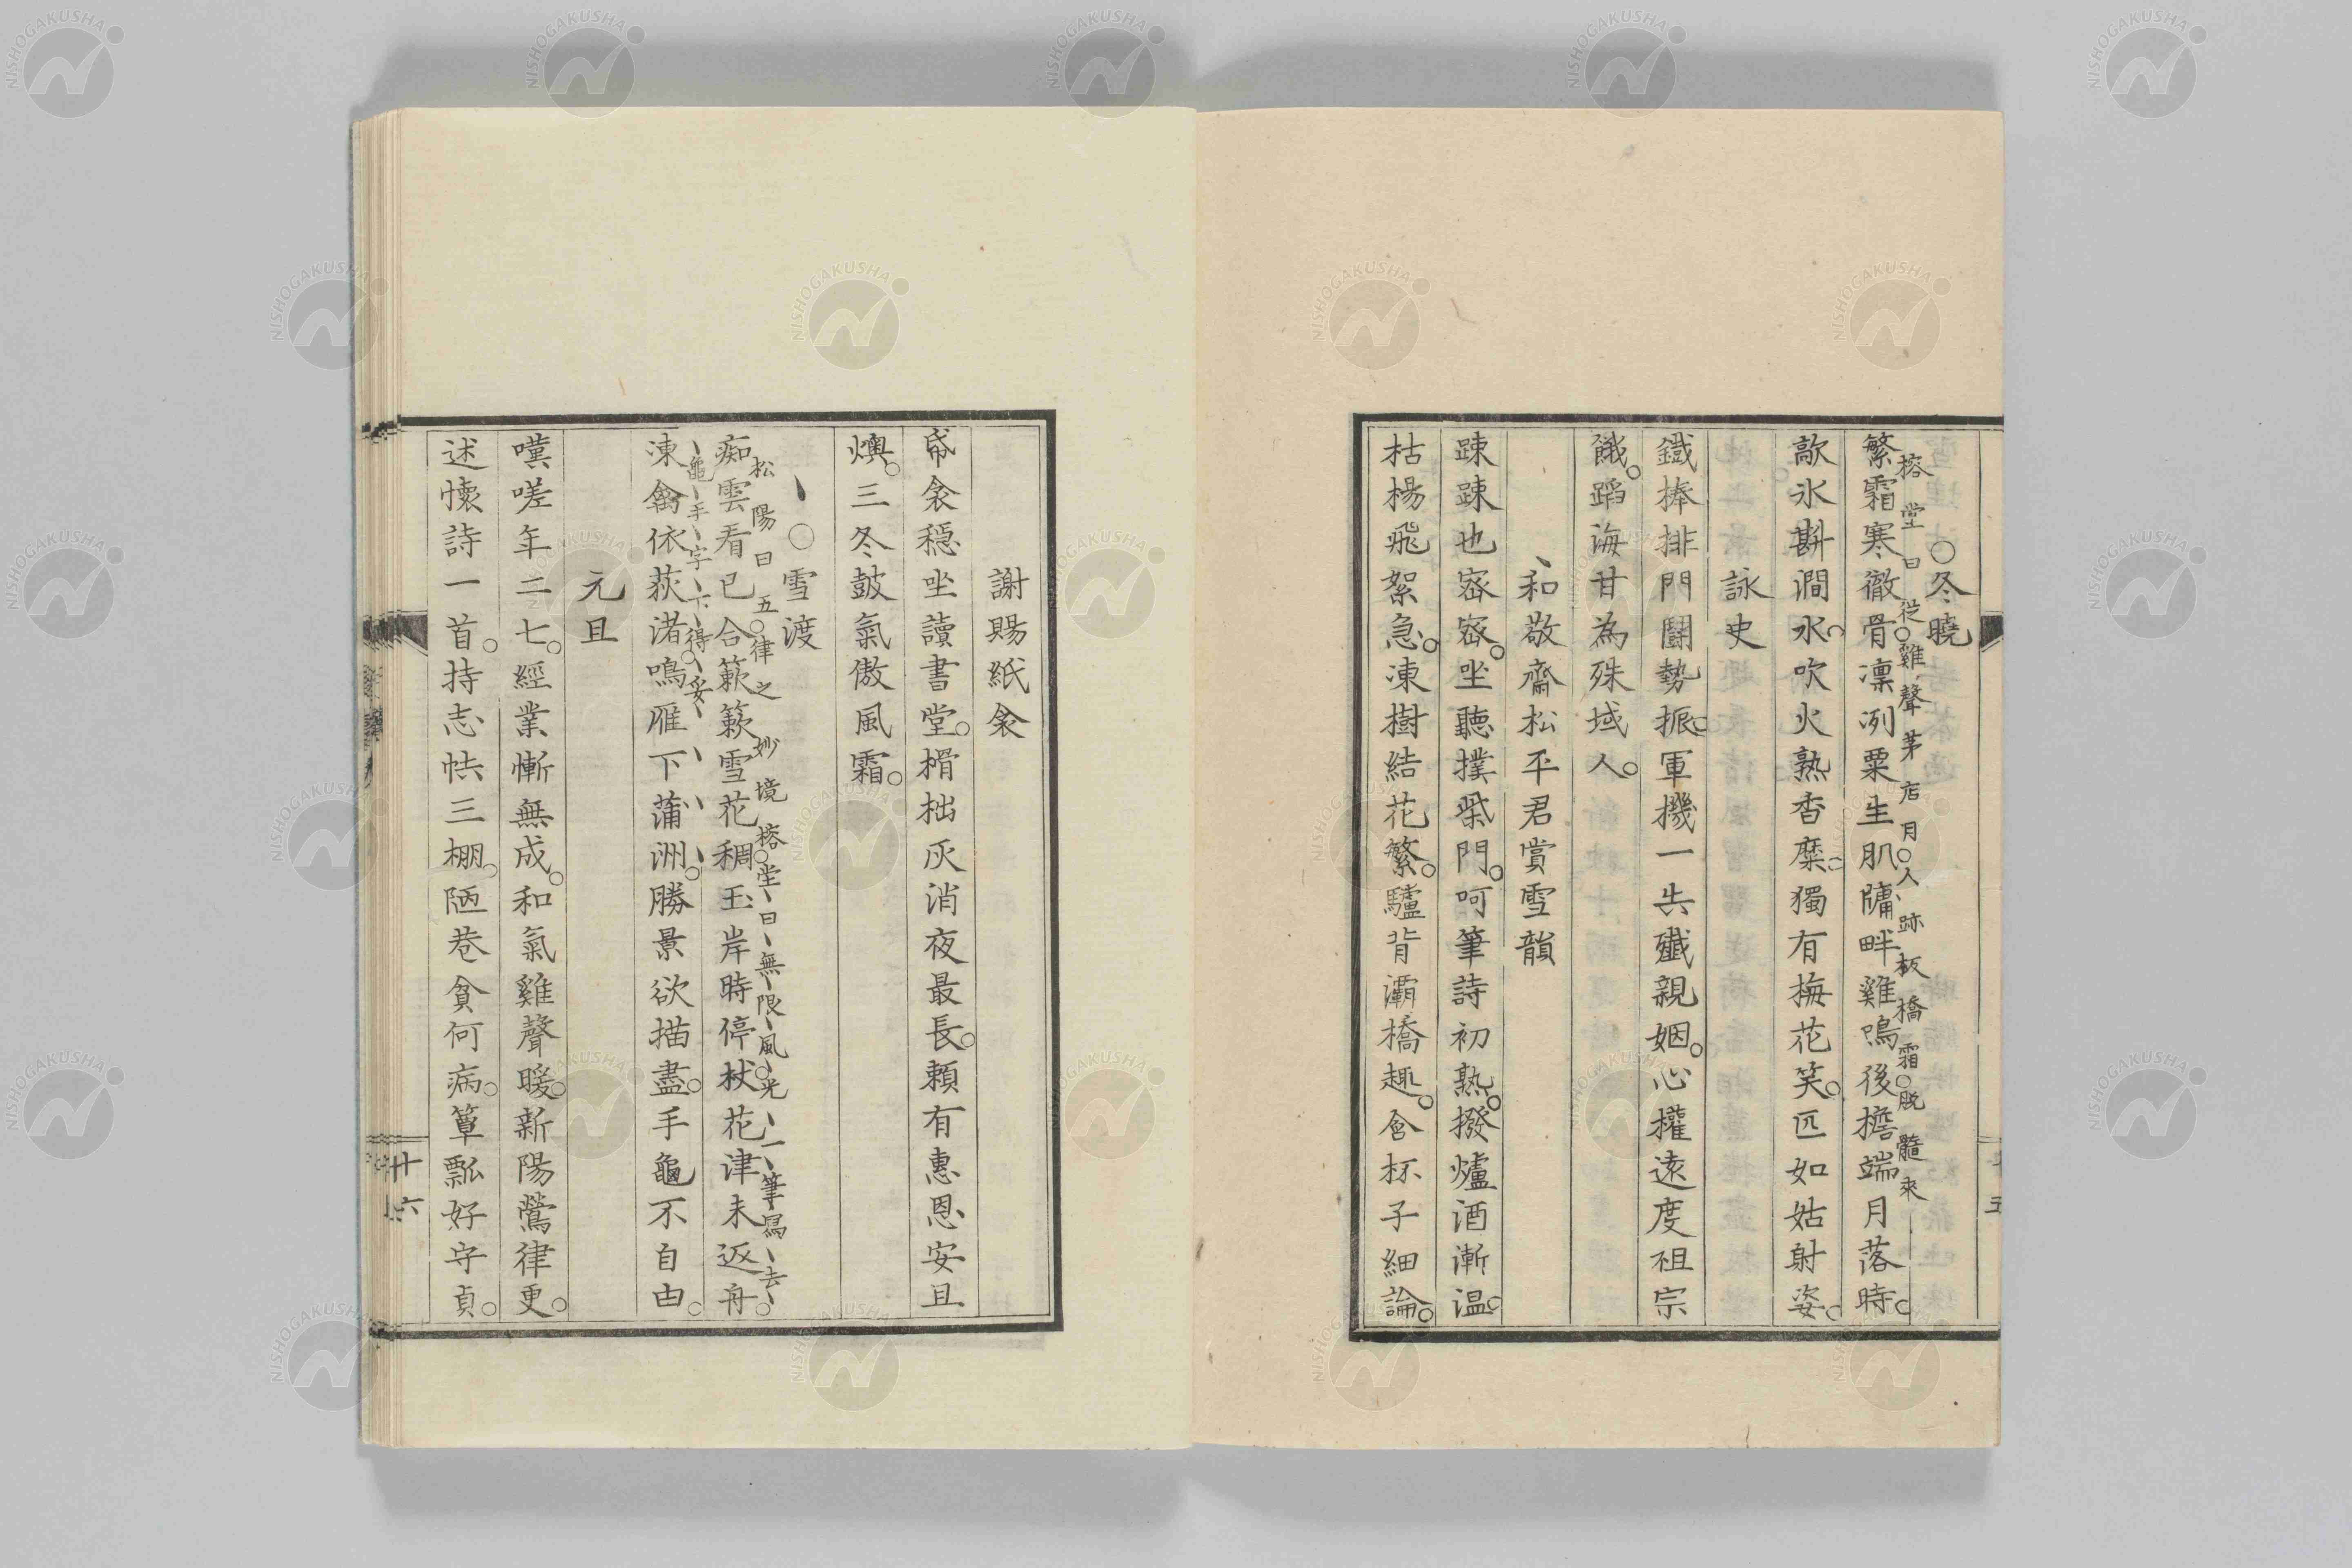 ○冬曉
榕堂曰從雞聲茅店月人跡板橋霜脫髓來
繁霜寒徹骨凛冽粟生肌牗畔雞鳴後檐端月落時
敲氷斟澗水吹火熟香糜獨有梅花笑匹如姑射姿
詠史
鐵捧排門鬪勢振軍機一失殲親姻心權遠度祖宗
餓蹈海甘為殊域人
、和敬齋松平君賞雪韻
踈踈也宻宻坐聽撲柴門呵筆詩初熟撥爐酒漸温
枯楊飛絮急凍樹結花繁驢背灞橋趣含杯子細論
謝賜紙衾
帋衾穏坐讀書堂榾柮灰消夜最長頼有惠恩安且
燠三冬皷氣傲風霜
、○雪渡
松陽曰五律之妙境榕堂曰無限風光一筆冩去
痴雲看已合簌簌雪花稠玉岸時停杖花津未返舟
龜手字下得妥
凍禽依荻渚鳴雁下蒲洲勝景欲描盡手龜不自由
元旦
嘆嗟年二七經業慚無成和氣雞聲暖新陽鶯律更
述懷詩一首持志帙三棚陋巷貧何病簞瓢好守貞
十六
NISHOGAKUSHA